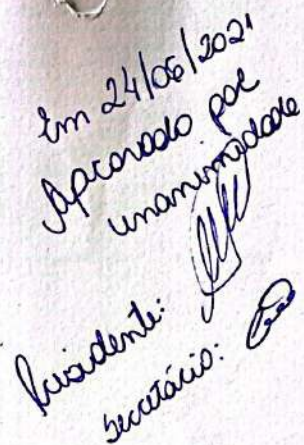 Em 24/06/2021
Aprovado por
unanimidade
Presidente:
Secretário: